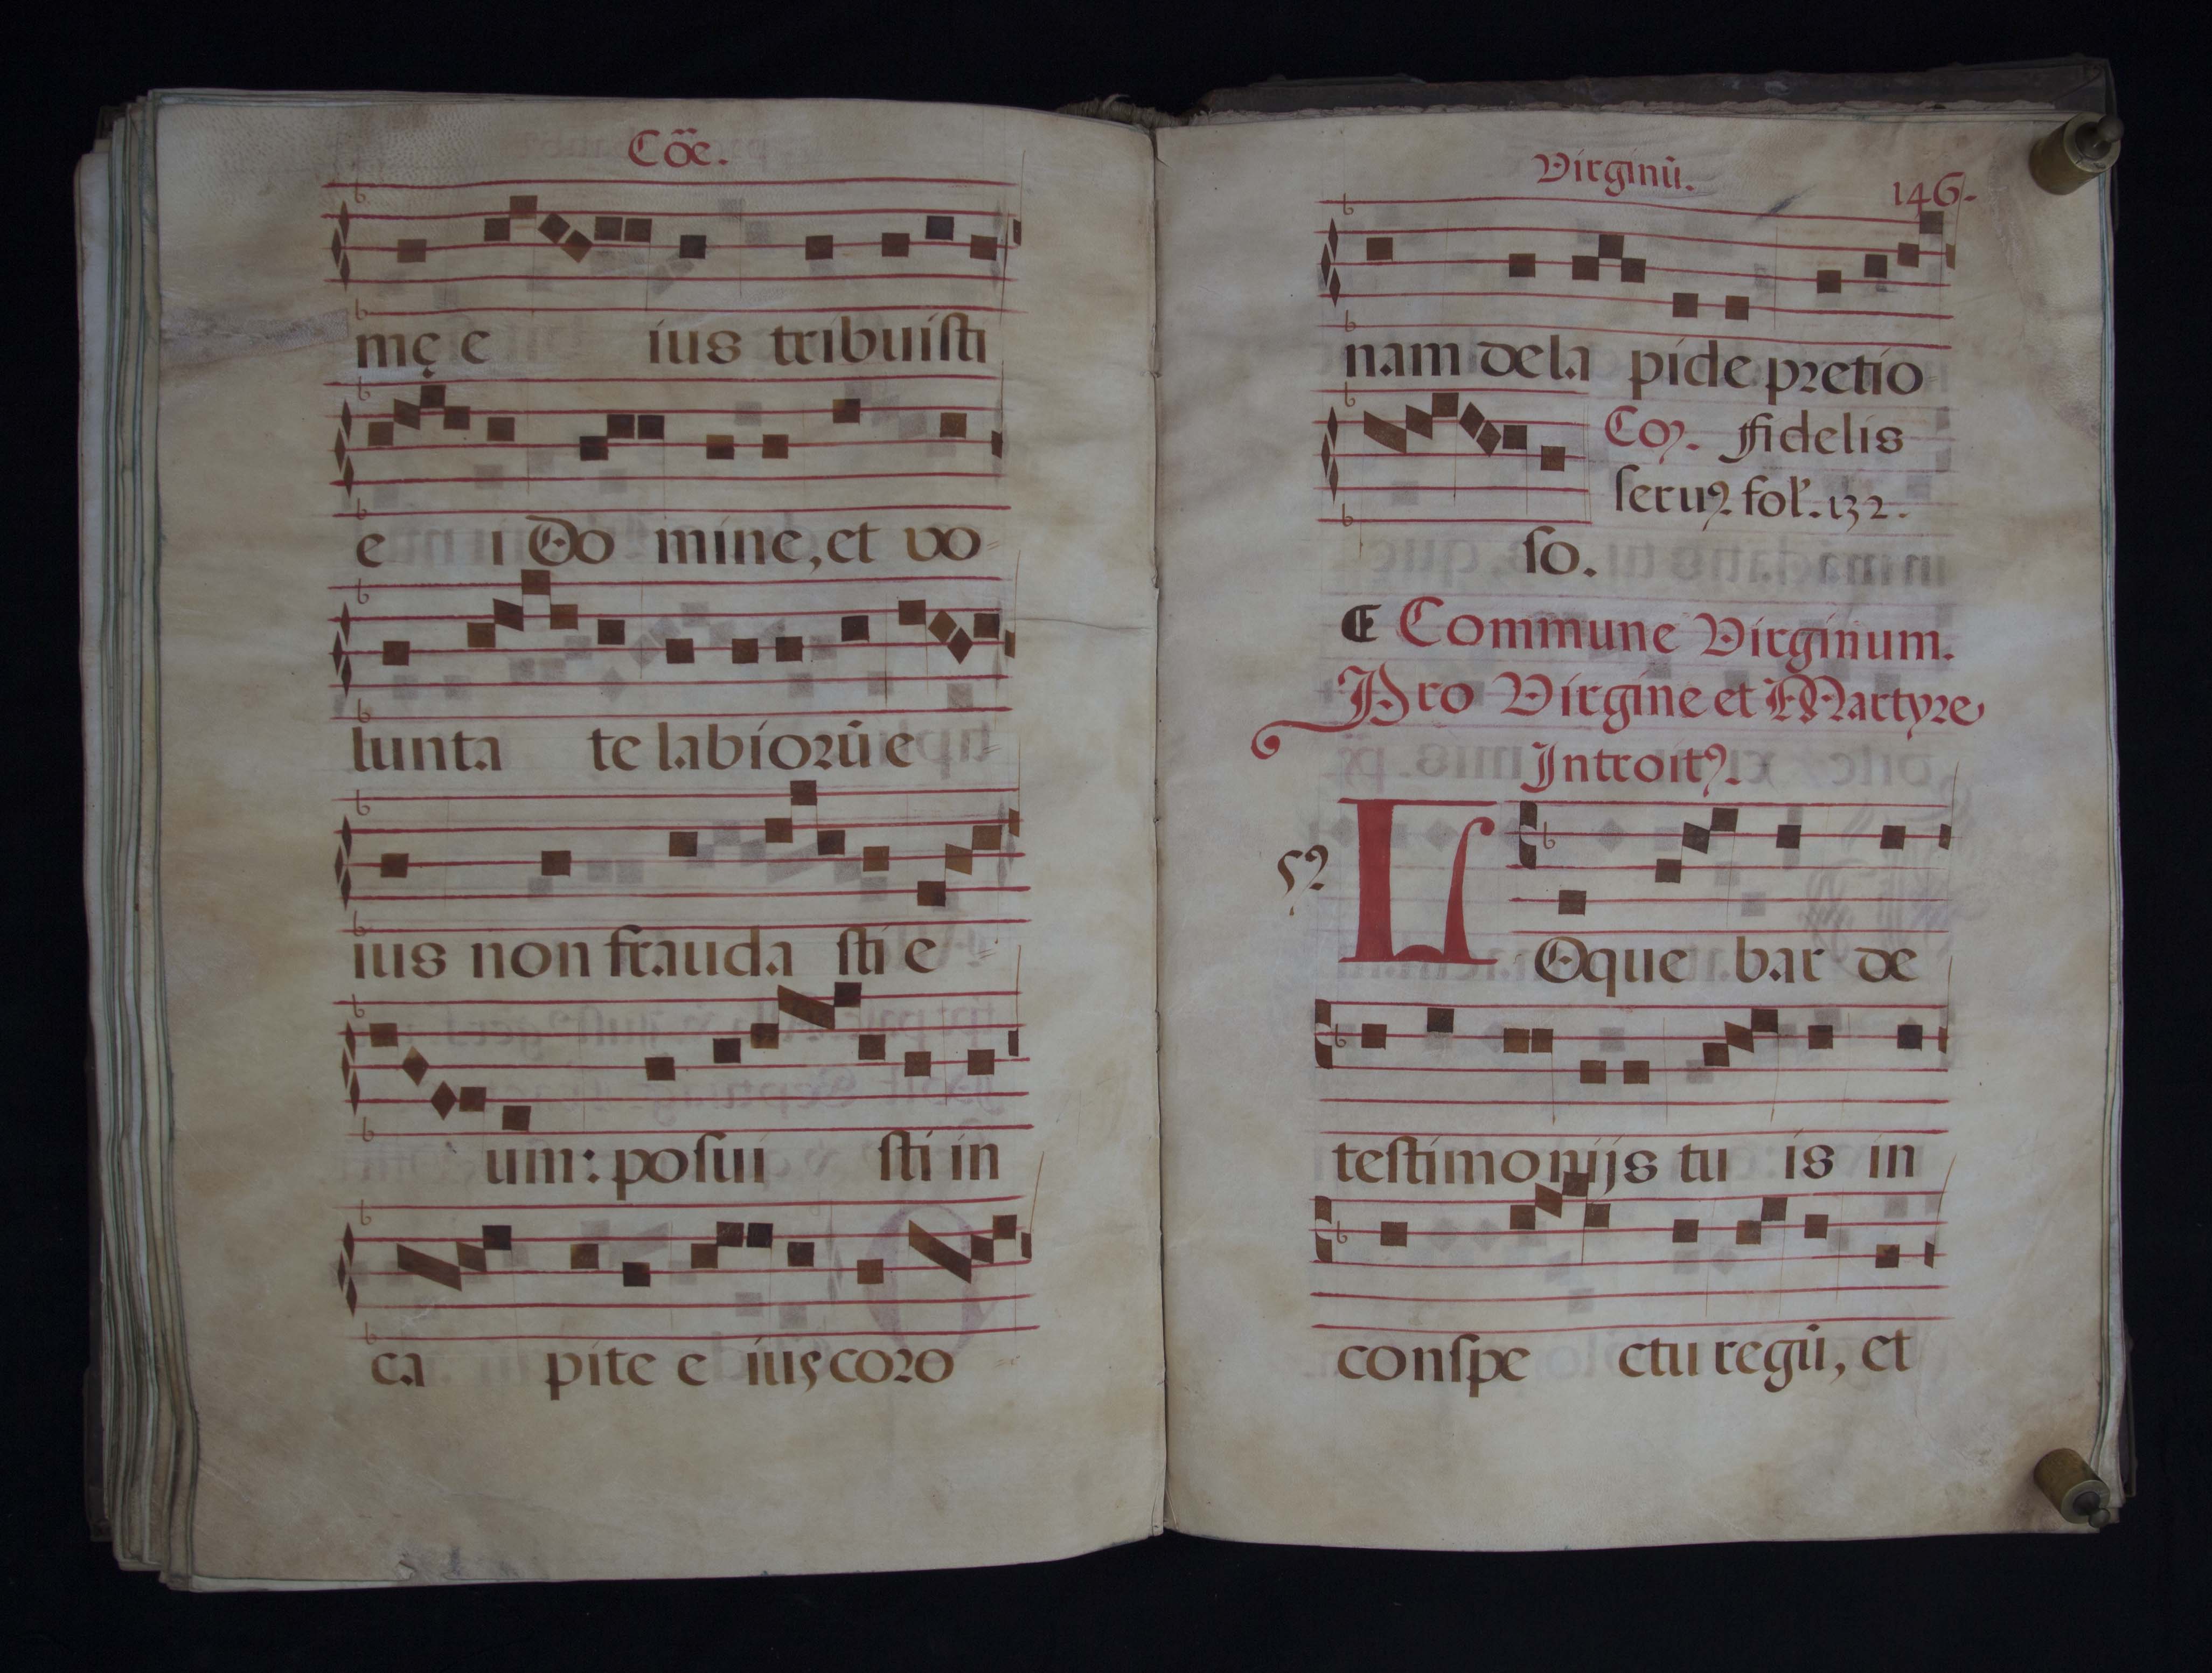 Cõe.
mę e ius tribuisti
e i Do mine, et vo
lunta te labiorũ e
ius non frauda sti e
um: posui sti in
ca pite e ius coro
Virginũ. 146.
nam de la pide pretio
Cõ. fidelis
seruꝰ fol. 132.
so.
Commune Virginum.
Pro Virgine et Martyre
Introitꝰ.
5ꝰ
LOque bar de
testimonijs tu is in
conspe ctu regũ, et